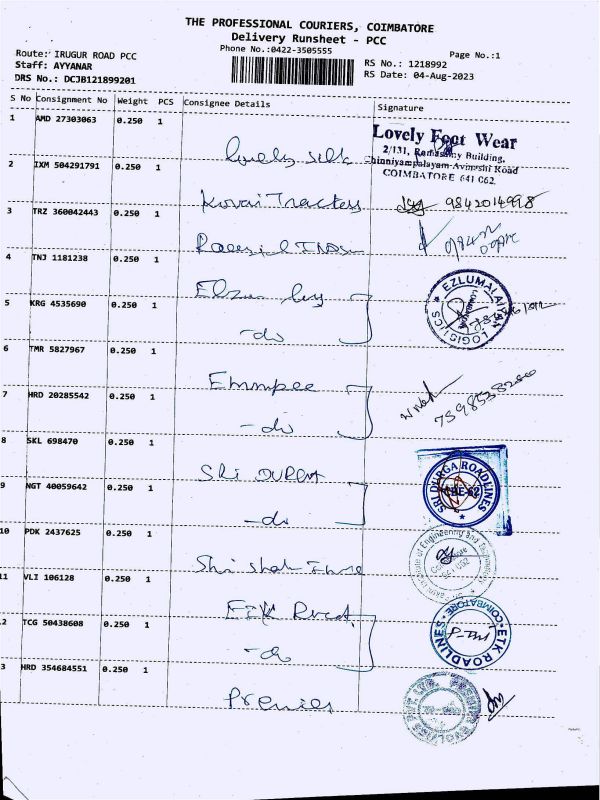 THE PROFESSIONAL COURIERS, COIMBATORE
Delivery Runsheet - PCC
Phone No.:0422-3505555
Page No.:1
Route: IRUGUR ROAD PCC
Staff: AYYANAR
DRS No.: DCJB121899201
RS No.: 1218992
RS Date: 04-Aug-2023
S No Consignment No Weight PCS Consignee Details Signature
1 AMD 27303063 0.250 1
Lovely silk
Lovely Foot Wear
2/131, Ramasamy Building,
Chinniyampalayam-Avinashi Road
COIMBATORE 641 062.
2 IXM 504291791 0.250 1
Kovai Tractors 9842014998
3 TRZ 360042443 0.250 1
4 TNJ 1181238 0.250 1
EZLUMALAIYAN LOGISTICS
5 KRG 4535690 0.250 1
-do
6 TMR 5827967 0.250 1
Emmpee
7 HRD 20285542 0.250 1
-do
8 SKL 698470 0.250 1
SRI DURGA
SRI DURGA ROADLINES
CBE-62
9 NGT 40059642 0.250 1
-do
10 PDK 2437625 0.250 1
of Engineering and Technology
11 VLI 106128 0.250 1
ETK
ETK ROADLINES
COIMBATORE
2 TCG 50438608 0.250 1
-do
3 HRD 354684551 0.250 1
Premier